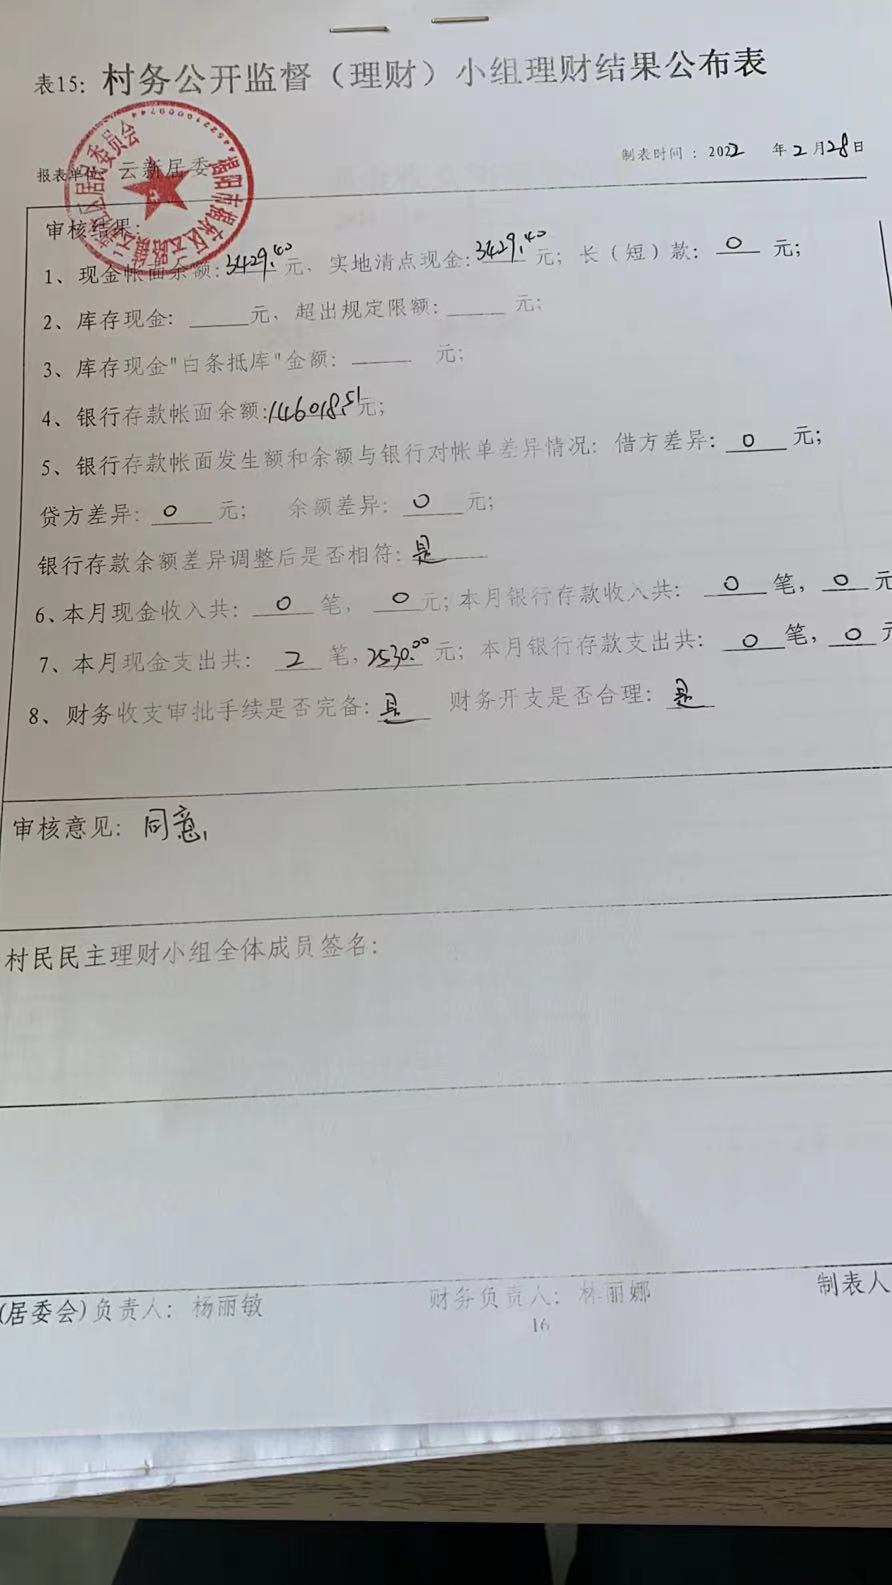 表15：村务公开监督（理财）小组理财结果公布表
报表单位：云新居委 制表时间：2022 年2月28日
审核结果：
1、现金帐面余额：3429.40元，实地清点现金：3429.40元；长（短）款：0元；
2、库存现金：____元，超出规定限额：____元；
3、库存现金"白条抵库"金额：____元；
4、银行存款帐面余额：146018.51元；
5、银行存款帐面发生额和余额与银行对帐单差异情况：借方差异：0元；
贷方差异：0元； 余额差异：0元；
银行存款余额差异调整后是否相符：是
6、本月现金收入共：0笔，0元；本月银行存款收入共：0笔，0元
7、本月现金支出共：2笔，2530.00元；本月银行存款支出共：0笔，0元
8、财务收支审批手续是否完备：是 财务开支是否合理：是
审核意见：同意
村民民主理财小组全体成员签名：
(居委会)负责人：杨丽敏 财务负责人：林丽娜 制表人
16